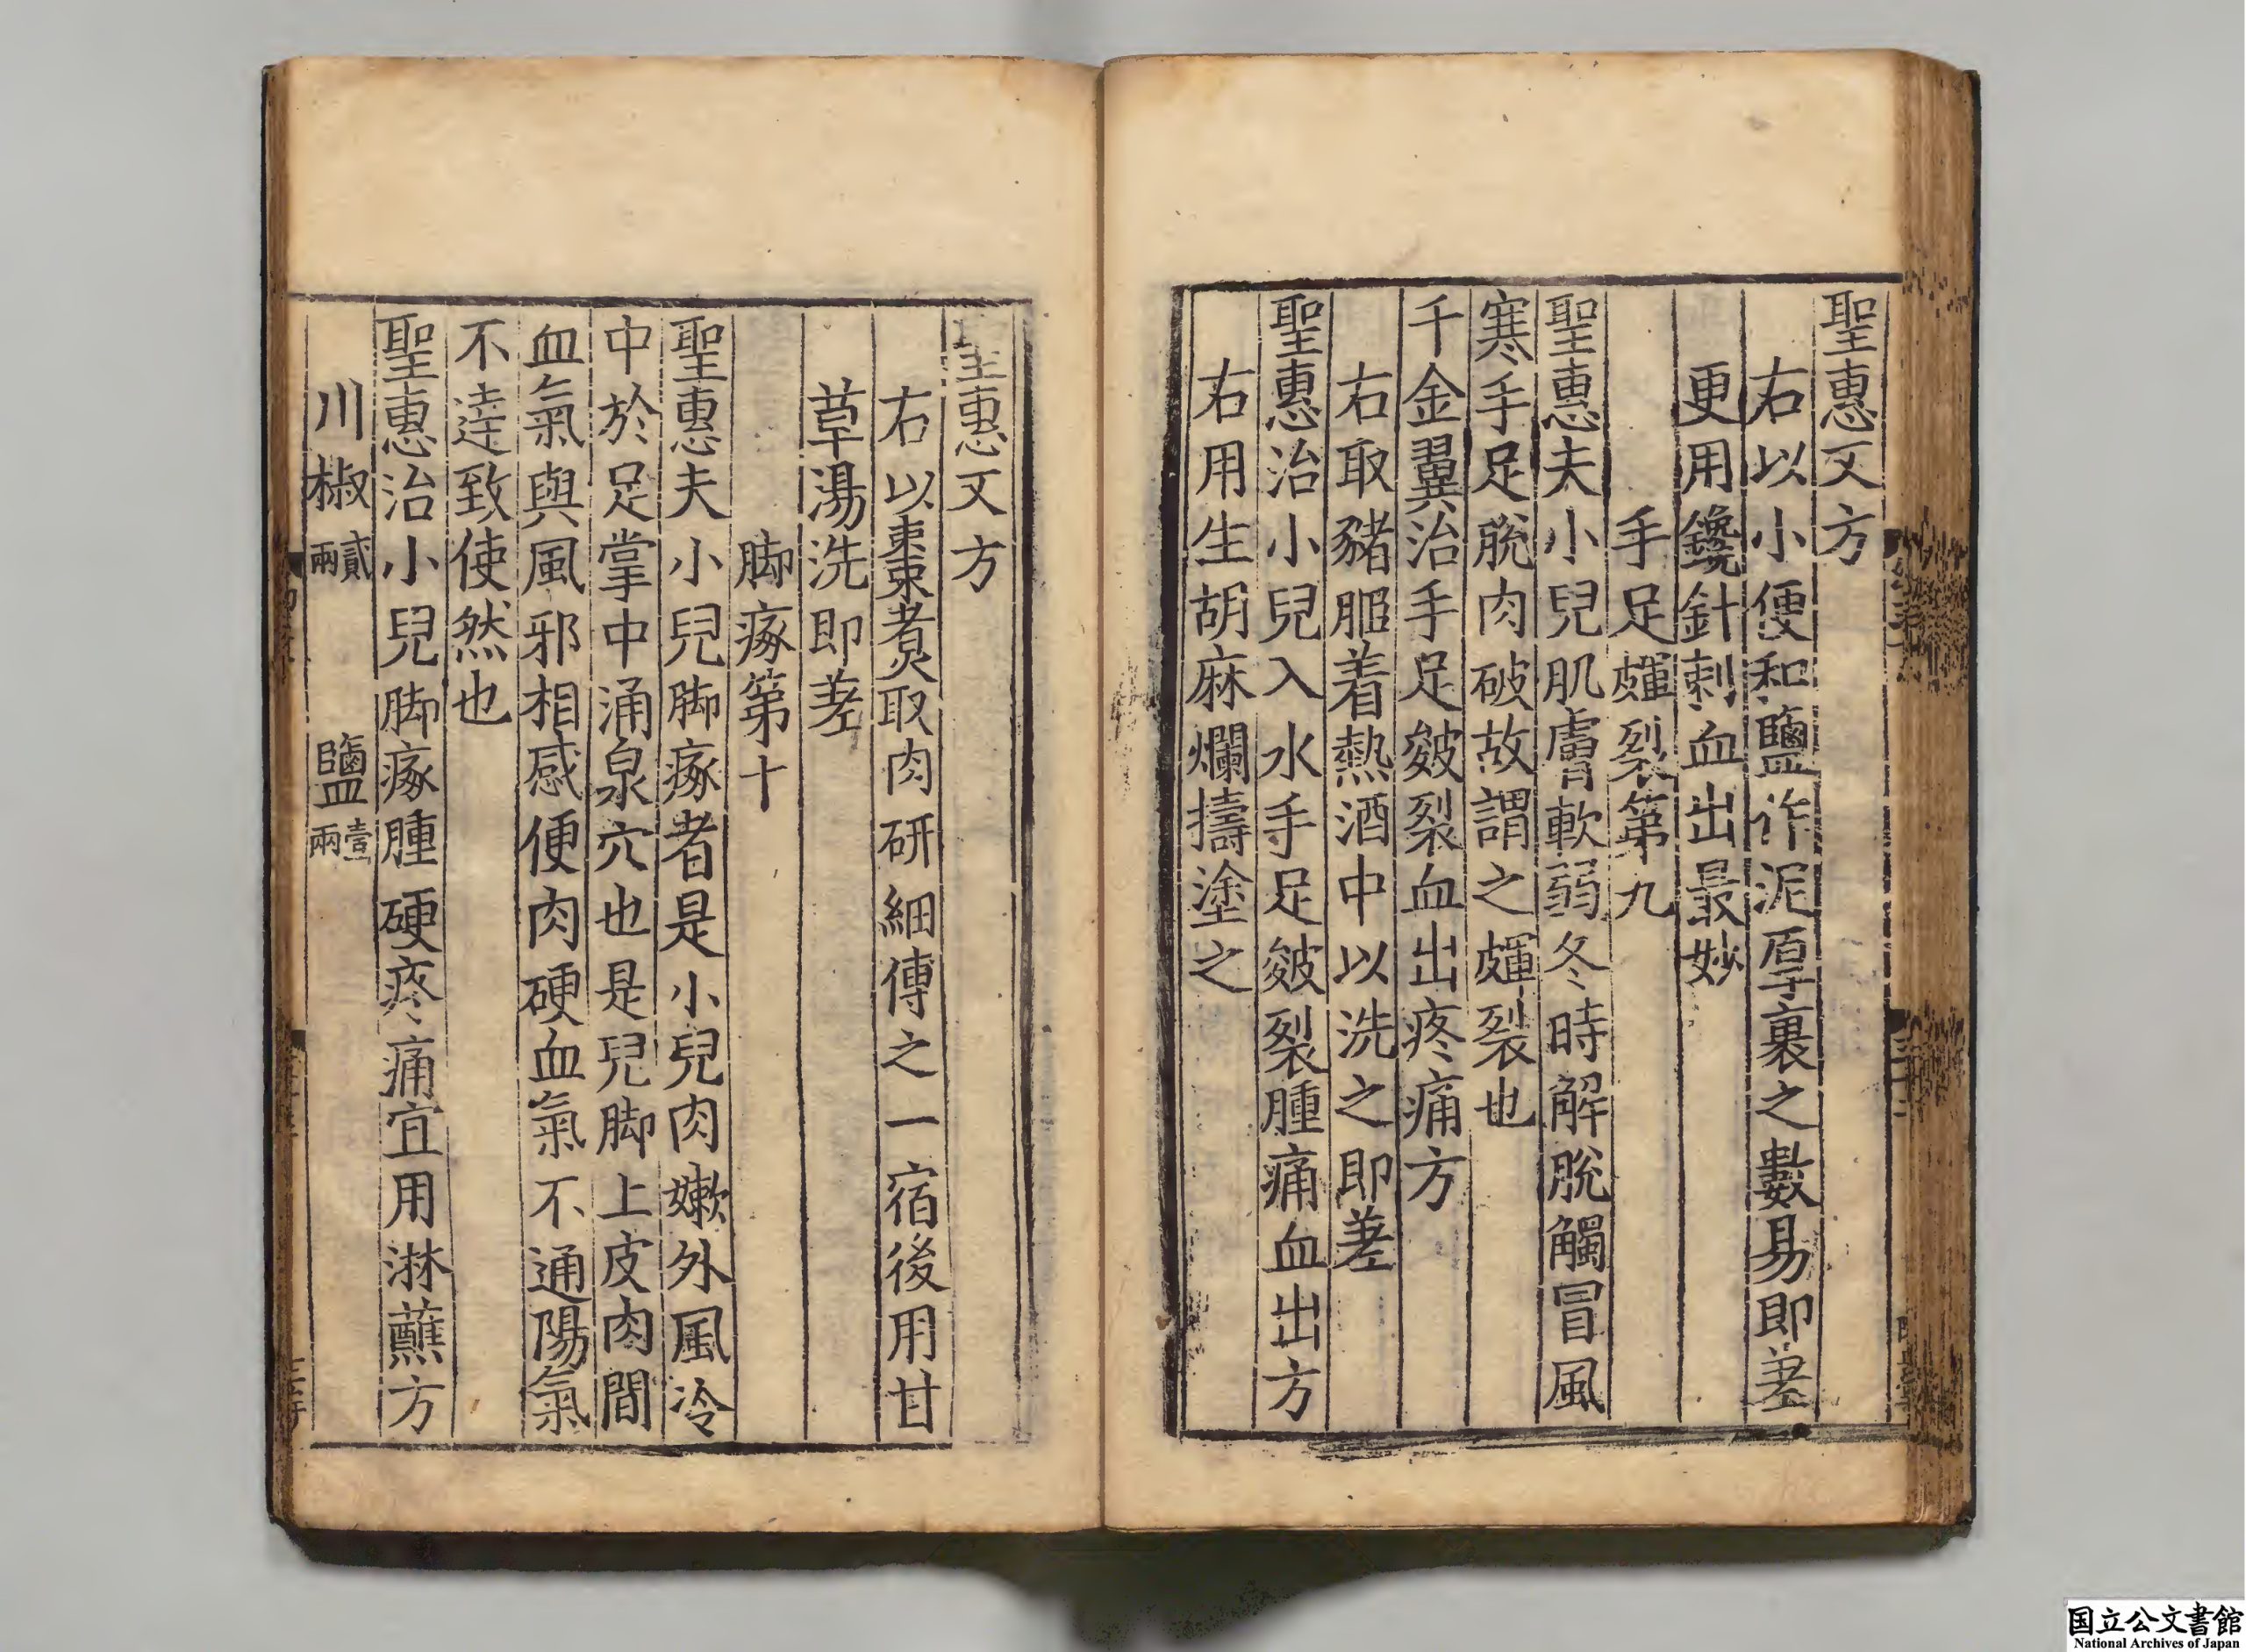 聖惠又方
右以小便和鹽作泥厚裹之數易即差
更用鑱針刺血出最妙
手足皹裂第九
聖惠夫小兒肌膚軟弱冬時解脫觸冒風
寒手足脫肉破故謂之皹裂也
千金翼治手足皴裂血出疼痛方
右取豬脏着熱酒中以洗之即差
聖惠治小兒入水手足皴裂腫痛血出方
右用生胡麻爛擣塗之
聖惠又方
右以棗煑取肉研細傅之一宿後用甘
草湯洗即差
脚瘃第十
聖惠夫小兒脚瘃者是小兒肉嫰外風冷
中於足掌中涌泉穴也是兒脚上皮肉間
血氣與風邪相感便肉硬血氣不通陽氣
不達致使然也
聖惠治小兒脚瘃腫硬疼痛宜用淋蘸方
川椒貳兩 鹽壹兩
国立公文書館
National Archives of Japan